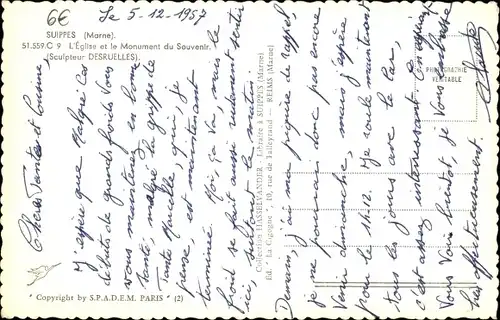 6€
Le 5-12-1957
SUIPPES (Marne).
51.559.C 9 L'Église et le Monument du Souvenir.
(Sculpteur DESRUELLES).
Chers Tantes et Cousine,
J'espère que malgré ces
débuts de grands froids vous
vous maintenez en bonne
santé, malgré la grippe de
Tante qui, je
pense, est maintenant
terminée. Moi, ça va, mais le
froid se fait aussi rudement sentir
ici, surtout le matin.
Collection HASSELVANDER - Libraire à SUIPPES (Marne)
Éd. "La Cigogne" - 10, rue de Talleyrand - REIMS (Marne)
Demain, j'ai ma piqûre de rappel,
je ne pourrai donc pas encore
venir dimanche, mais j'espère
pour le 14-12. Je roule maintenant
tous les jours avec le car,
c'est assez intéressant
Vous Voir bientôt, je Vous embrasse
bien affectueusement.
Claude
PHOTOGRAPHIE
VÉRITABLE
"Copyright by S.P.A.D.E.M. PARIS" (2)